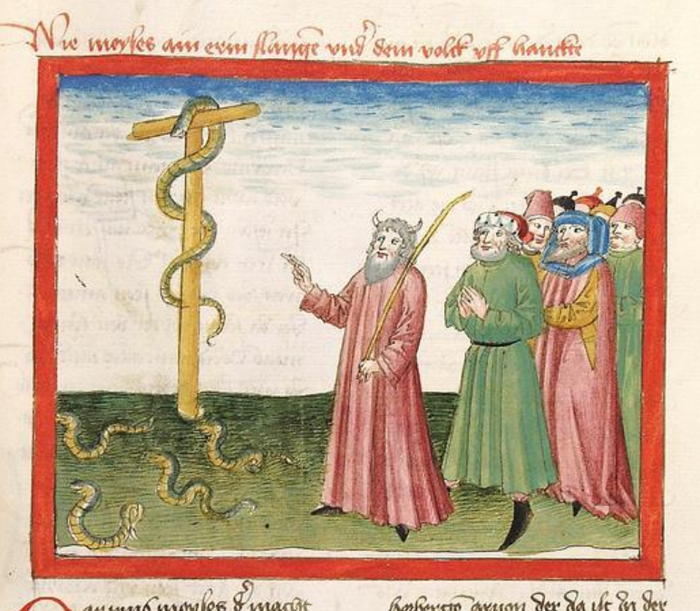 Wie moyses ain erin slangē vnd̾ dem volck vff hanckte
moyses d̾ macht
der da ist in der